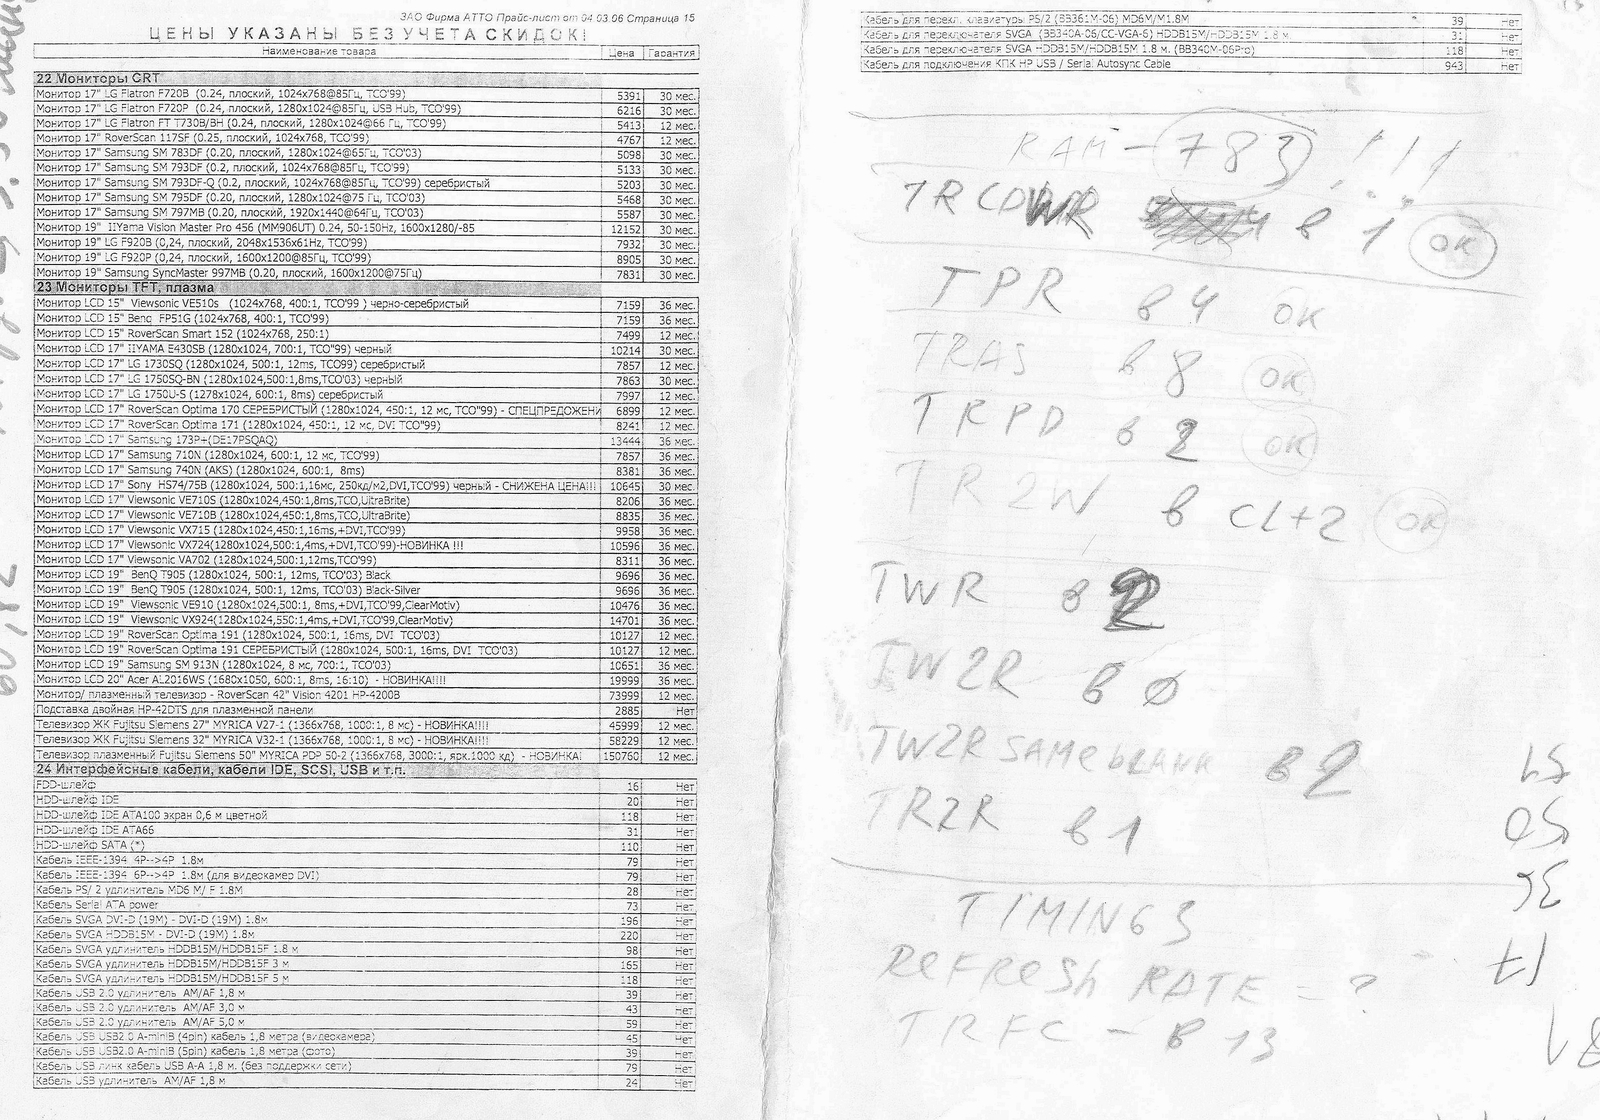 ЗАО Фирма АТТО Прайс-лист от 04 03.06 Страница 15
ЦЕНЫ УКАЗАНЫ БЕЗ УЧЕТА СКИДОК!
Наименование товара Цена Гарантия
22 Мониторы CRT
Монитор 17" LG Flatron F720B (0.24, плоский, 1024x768@85Гц, TCO'99) 5391 30 мес.
Монитор 17" LG Flatron F720P (0.24, плоский, 1280x1024@85Гц, USB Hub, TCO'99) 6216 30 мес.
Монитор 17" LG Flatron FT T730B/BH (0.24, плоский, 1280x1024@66 Гц, TCO'99) 5413 12 мес.
Монитор 17" RoverScan 117SF (0.25, плоский, 1024x768, TCO'99) 4767 12 мес.
Монитор 17" Samsung SM 783DF (0.20, плоский, 1280x1024@65Гц, TCO'03) 5098 30 мес.
Монитор 17" Samsung SM 793DF (0.2, плоский, 1024x768@85Гц, TCO'99) 5133 30 мес.
Монитор 17" Samsung SM 793DF-Q (0.2, плоский, 1024x768@85Гц, TCO'99) серебристый 5203 30 мес.
Монитор 17" Samsung SM 795DF (0.20, плоский, 1280x1024@75 Гц, TCO'03) 5468 30 мес.
Монитор 17" Samsung SM 797MB (0.20, плоский, 1920x1440@64Гц, TCO'03) 5587 30 мес.
Монитор 19" IIYama Vision Master Pro 456 (MM906UT) 0.24, 50-150Hz, 1600x1280/-85 12152 30 мес.
Монитор 19" LG F920B (0,24, плоский, 2048x1536x61Hz, TCO'99) 7932 30 мес.
Монитор 19" LG F920P (0,24, плоский, 1600x1200@85Гц, TCO'99) 8905 30 мес.
Монитор 19" Samsung SyncMaster 997MB (0.20, плоский, 1600x1200@75Гц) 7831 30 мес.
23 Мониторы TFT, плазма
Монитор LCD 15" Viewsonic VE510s (1024x768, 400:1, TCO'99 ) черно-серебристый 7159 36 мес.
Монитор LCD 15" Benq FP51G (1024x768, 400:1, TCO'99) 7159 36 мес.
Монитор LCD 15" RoverScan Smart 152 (1024x768, 250:1) 7499 12 мес.
Монитор LCD 17" IIYAMA E430SB (1280x1024, 700:1, TCO"99) черный 10214 30 мес.
Монитор LCD 17" LG 1730SQ (1280x1024, 500:1, 12ms, TCO99) серебристый 7857 12 мес.
Монитор LCD 17" LG 1750SQ-BN (1280x1024,500:1,8ms,TCO'03) черный 7863 30 мес.
Монитор LCD 17" LG 1750U-S (1278x1024, 600:1, 8ms) серебристый 7997 12 мес.
Монитор LCD 17" RoverScan Optima 170 СЕРЕБРИСТЫЙ (1280x1024, 450:1, 12 мс, TCO"99) - СПЕЦПРЕДОЖЕНИ 6899 12 мес.
Монитор LCD 17" RoverScan Optima 171 (1280x1024, 450:1, 12 мс, DVI TCO"99) 8241 12 мес.
Монитор LCD 17" Samsung 173P+(DE17PSQAQ) 13444 36 мес.
Монитор LCD 17" Samsung 710N (1280x1024, 600:1, 12 мс, TCO'99) 7857 36 мес.
Монитор LCD 17" Samsung 740N (AKS) (1280x1024, 600:1, 8ms) 8381 36 мес.
Монитор LCD 17" Sony HS74/75B (1280x1024, 500:1,16мс, 250кд/м2,DVI,TCO'99) черный - СНИЖЕНА ЦЕНА!!! 10645 30 мес.
Монитор LCD 17" Viewsonic VE710S (1280x1024,450:1,8ms,TCO,UltraBrite) 8206 36 мес.
Монитор LCD 17" Viewsonic VE710B (1280x1024,450:1,8ms,TCO,UltraBrite) 8835 36 мес.
Монитор LCD 17" Viewsonic VX715 (1280x1024,450:1,16ms,+DVI,TCO'99) 9958 36 мес.
Монитор LCD 17" Viewsonic VX724(1280x1024,500:1,4ms,+DVI,TCO'99)-НОВИНКА !!! 10596 36 мес.
Монитор LCD 17" Viewsonic VA702 (1280x1024,500:1,12ms,TCO'99) 8311 36 мес.
Монитор LCD 19" BenQ T905 (1280x1024, 500:1, 12ms, TCO'03) Black 9696 36 мес.
Монитор LCD 19" BenQ T905 (1280x1024, 500:1, 12ms, TCO'03) Black-Silver 9696 36 мес.
Монитор LCD 19" Viewsonic VE910 (1280x1024,500:1, 8ms,+DVI,TCO'99,ClearMotiv) 10476 36 мес.
Монитор LCD 19" Viewsonic VX924(1280x1024,550:1,4ms,+DVI,TCO'99,ClearMotiv) 14701 36 мес.
Монитор LCD 19" RoverScan Optima 191 (1280x1024, 500:1, 16ms, DVI TCO'03) 10127 12 мес.
Монитор LCD 19" RoverScan Optima 191 СЕРЕБРИСТЫЙ (1280x1024, 500:1, 16ms, DVI TCO'03) 10127 12 мес.
Монитор LCD 19" Samsung SM 913N (1280x1024, 8 мс, 700:1, TCO'03) 10651 36 мес.
Монитор LCD 20" Acer AL2016WS (1680x1050, 600:1, 8ms, 16:10) - НОВИНКА!!!! 19999 36 мес.
Монитор/ плазменный телевизор - RoverScan 42" Vision 4201 HP-4200B 73999 12 мес.
Подставка двойная HP-42DTS для плазменной панели 2885 Нет
Телевизор ЖК Fujitsu Siemens 27" MYRICA V27-1 (1366x768, 1000:1, 8 мс) - НОВИНКА!!!! 45999 12 мес.
Телевизор ЖК Fujitsu Siemens 32" MYRICA V32-1 (1366x768, 1000:1, 8 мс) - НОВИНКА!!!! 58229 12 мес.
Телевизор плазменный Fujitsu Siemens 50" MYRICA PDP 50-2 (1366x768, 3000:1, ярк.1000 кд) - НОВИНКА! 150760 12 мес.
24 Интерфейсные кабели, кабели IDE, SCSI, USB и т.п.
FDD-шлейф 16 Нет
HDD-шлейф IDE 20 Нет
HDD-шлейф IDE ATA100 экран 0,6 м цветной 118 Нет
HDD-шлейф IDE ATA66 31 Нет
HDD-шлейф SATA (*) 110 Нет
Кабель IEEE-1394 4P-->4P 1.8м 79 Нет
Кабель IEEE-1394 6P-->4P 1.8м (для видеокамер DVI) 79 Нет
Кабель PS/ 2 удлинитель MD6 M/ F 1.8M 28 Нет
Кабель Serial ATA power 73 Нет
Кабель SVGA DVI-D (19M) - DVI-D (19M) 1.8м 196 Нет
Кабель SVGA HDDB15M - DVI-D (19M) 1.8м 220 Нет
Кабель SVGA удлинитель HDDB15M/HDDB15F 1.8 м 98 Нет
Кабель SVGA удлинитель HDDB15M/HDDB15F 3 м 165 Нет
Кабель SVGA удлинитель HDDB15M/HDDB15F 5 м 118 Нет
Кабель USB 2.0 удлинитель AM/AF 1,8 м 39 Нет
Кабель USB 2.0 удлинитель AM/AF 3,0 м 43 Нет
Кабель USB 2.0 удлинитель AM/AF 5,0 м 59 Нет
Кабель USB USB2.0 A-miniB (4pin) кабель 1,8 метра (видеокамера) 45 Нет
Кабель USB USB2.0 A-miniB (5pin) кабель 1,8 метра (фото) 39 Нет
Кабель USB линк кабель USB A-A 1,8 м. (без поддержки сети) 79 Нет
Кабель USB удлинитель AM/AF 1,8 м 24 Нет
Кабель для перекл. клавиатуры PS/2 (BB361M-06) MD6M/M1.8M 39 Нет
Кабель для переключателя SVGA (BB340A-06/CC-VGA-6) HDDB15M/HDDB15M 1.8 м. 31 Нет
Кабель для переключателя SVGA HDDB15M/HDDB15M 1.8 м. (BB340M-06Pro) 118 Нет
Кабель для подключения КПК HP USB / Serial Autosync Cable 943 Нет
RAM - 783 !!!
TRCDWR в 1 OK
TPR в 4 OK
TRAS в 8 OK
TRPD в 2 OK
TR2W в CL+2 OK
TWR в 2
TW2R в 0
TW2R SAME BLANK в 2
TR2R в 1
TIMING 3
REFRESH RATE = ?
TRFC - в 13
51
50
36
17